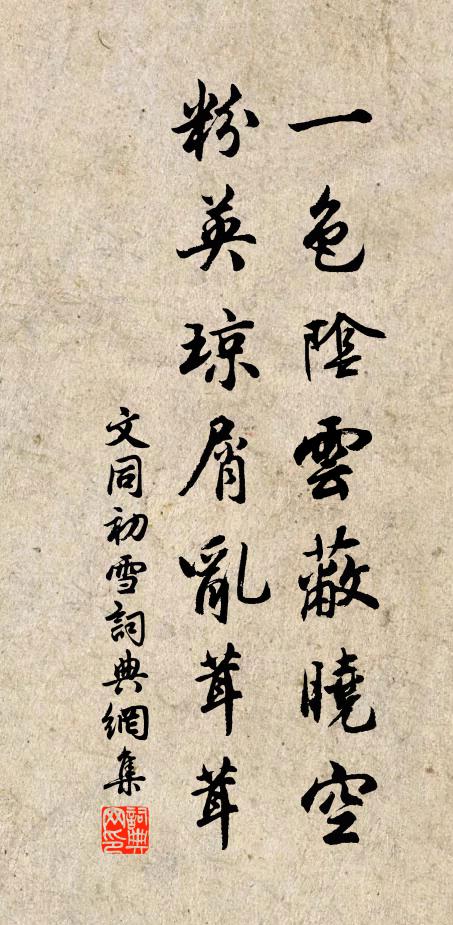 一色陰雲蔽曉空
粉英琼屑亂茸茸
文同初雪詞典網集
詞典網印